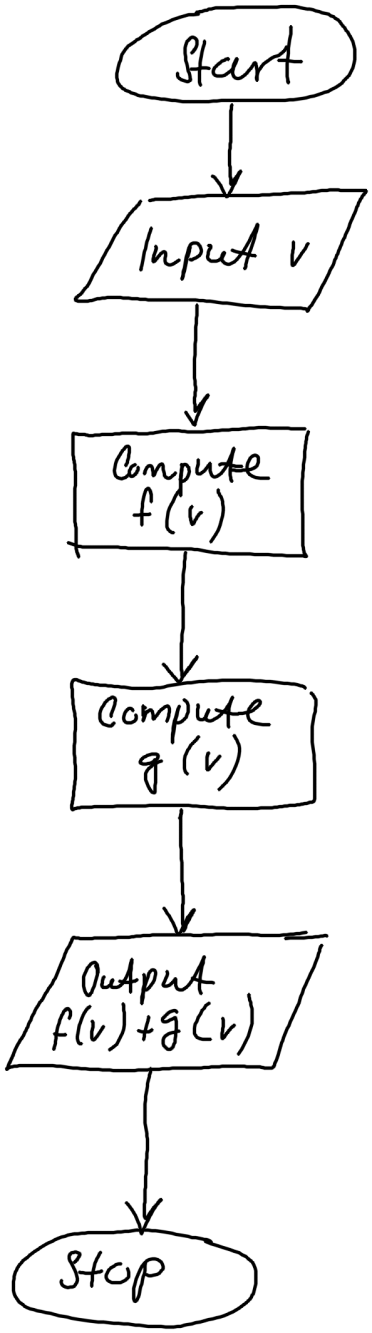 Start
Input v
Compute
f(v)
Compute
g(v)
Output
f(v)+g(v)
Stop